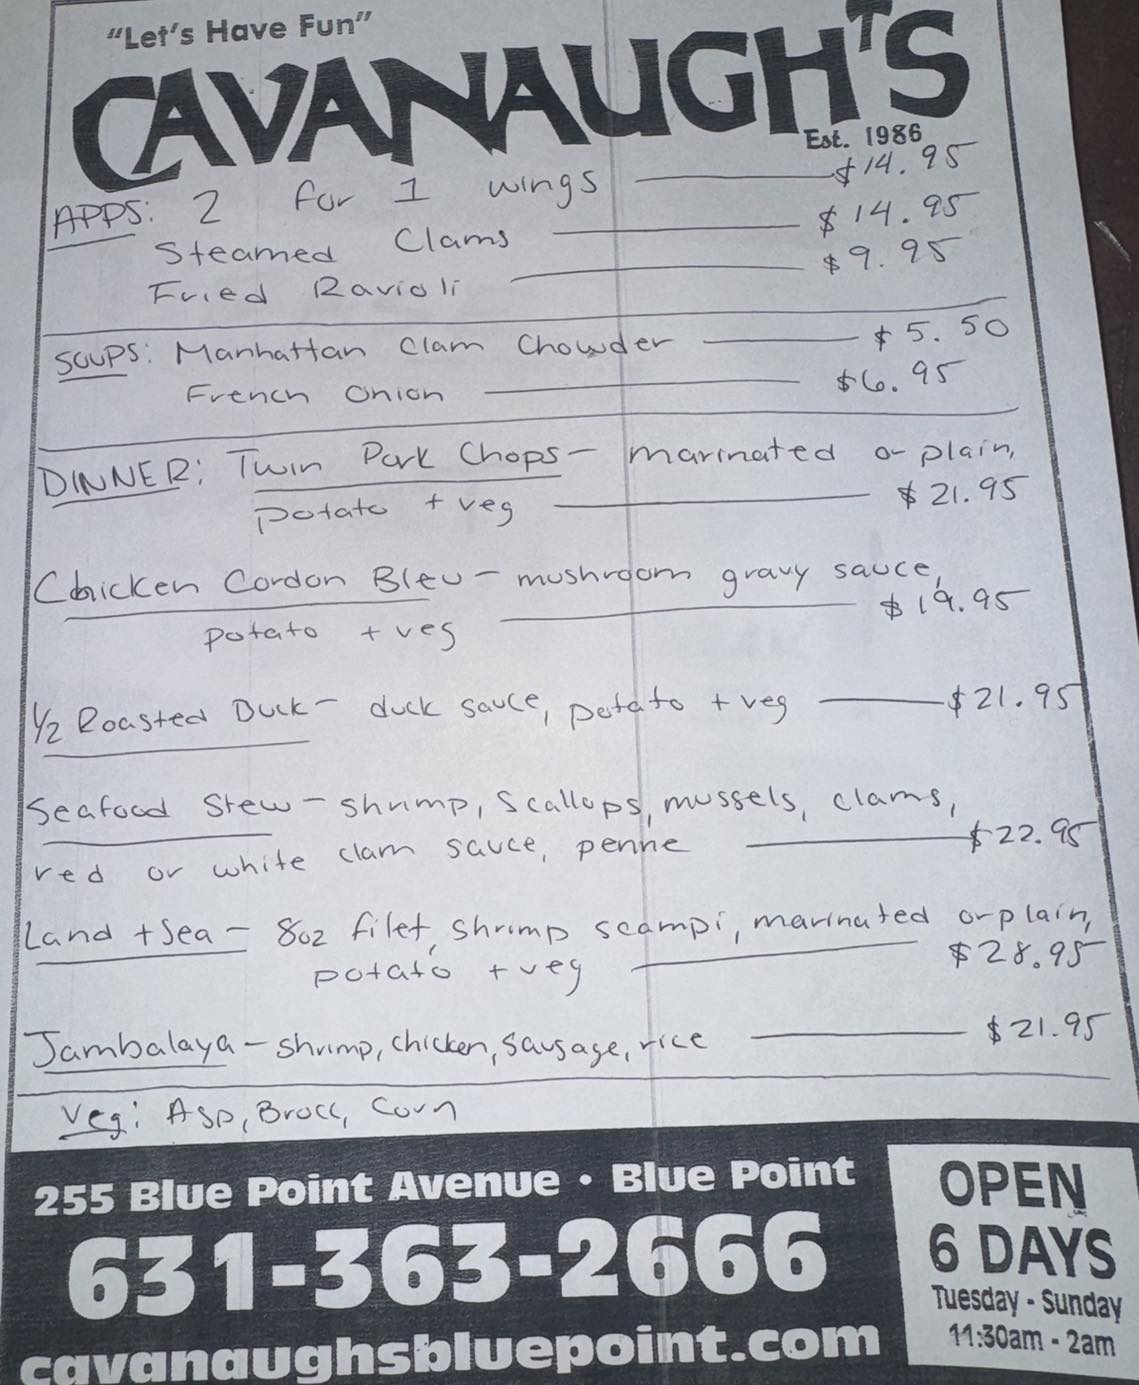 "Let's Have Fun"
CAVANAUGH'S
Est. 1986
APPS: 2 for 1 wings $14.95
Steamed Clams $14.95
Fried Ravioli $9.95
SOUPS: Manhattan Clam Chowder $5.50
French Onion $6.95
DINNER: Twin Pork Chops - marinated or plain,
potato + veg $21.95
Chicken Cordon Bleu - mushroom gravy sauce,
potato + veg $19.95
1/2 Roasted Duck - duck sauce, potato + veg $21.95
Seafood Stew - shrimp, scallops, mussels, clams,
red or white clam sauce, penne $22.95
Land + Sea - 8oz filet, shrimp scampi, marinated or plain,
potato + veg $28.95
Jambalaya - shrimp, chicken, sausage, rice $21.95
Veg: Asp, Brocc, Corn
255 Blue Point Avenue • Blue Point
631-363-2666
cavanaughsbluepoint.com
OPEN
6 DAYS
Tuesday - Sunday
11:30am - 2am